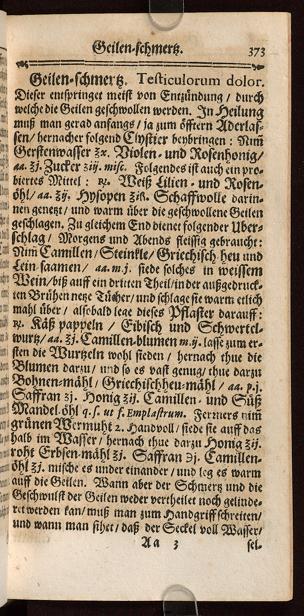 Geilen-schmertz. 373
Geilen-schmertz. Testiculorum dolor.
Dieser entspringet meist von Entzündung / durch
welche die Geilen geschwollen werden. In Heilung
muß man gerad anfangs / ja zum öfftern Aderlas-
sen / hernacher folgend Clystier beybringen: Nim
Gerstenwasser ℥x. Violen- und Rosenhonig /
aa. ℥j. Zucker ℥ij. misc. Folgendes ist auch ein pro-
biertes Mittel: ℞. Weiß Lilien- und Rosen-
öhl / aa. ℥ij. Hysopen ℥iß. Schaffwolle darin-
nen genetzt / und warm über die geschwollene Geilen
geschlagen. Zu gleichem End dienet folgender Uber-
schlag / Morgens und Abends fleissig gebraucht:
Nim Camillen / Steinkle / Griechisch heu und
Lein saamen / aa. m. j. siede solches in weissem
Wein / biß auff ein dritten Theil / in der außgedruck-
ten Brühen netze Tücher / und schlage sie warm etlich
mahl über / alsobald lege dieses Pflaster darauff:
℞. Käß pappeln / Eibisch und Schwertel-
wurtz / aa. ℥j. Camillen-blumen m. ij. lasse zum er-
sten die Wurtzeln wohl sieden / hernach thue die
Blumen darzu / und so es vast genug / thue darzu
Bohnen-mähl / Griechischheu-mähl / aa. p. j.
Saffran ʒj. Honig ℥ij. Camillen- und Süß
Mandel öhl q. s. ut f. Emplastrum. Ferners nim
grünen Wermuht 2. Handvoll / siede sie auff das
halb im Wasser / hernach thue darzu Honig ℥ij.
roht Erbsen-mähl ℥j. Saffran ℈j. Camillen-
öhl ℥j. mische es under einander / und leg es warm
auff die Geilen. Wann aber der Schmertz und die
Geschwulst der Geilen weder vertheilet noch gelinde-
ret werden kan / muß man zum Handgriff schreiten /
und wann man sihet / daß der Seckel voll Wasser /
Aa 3 sel.